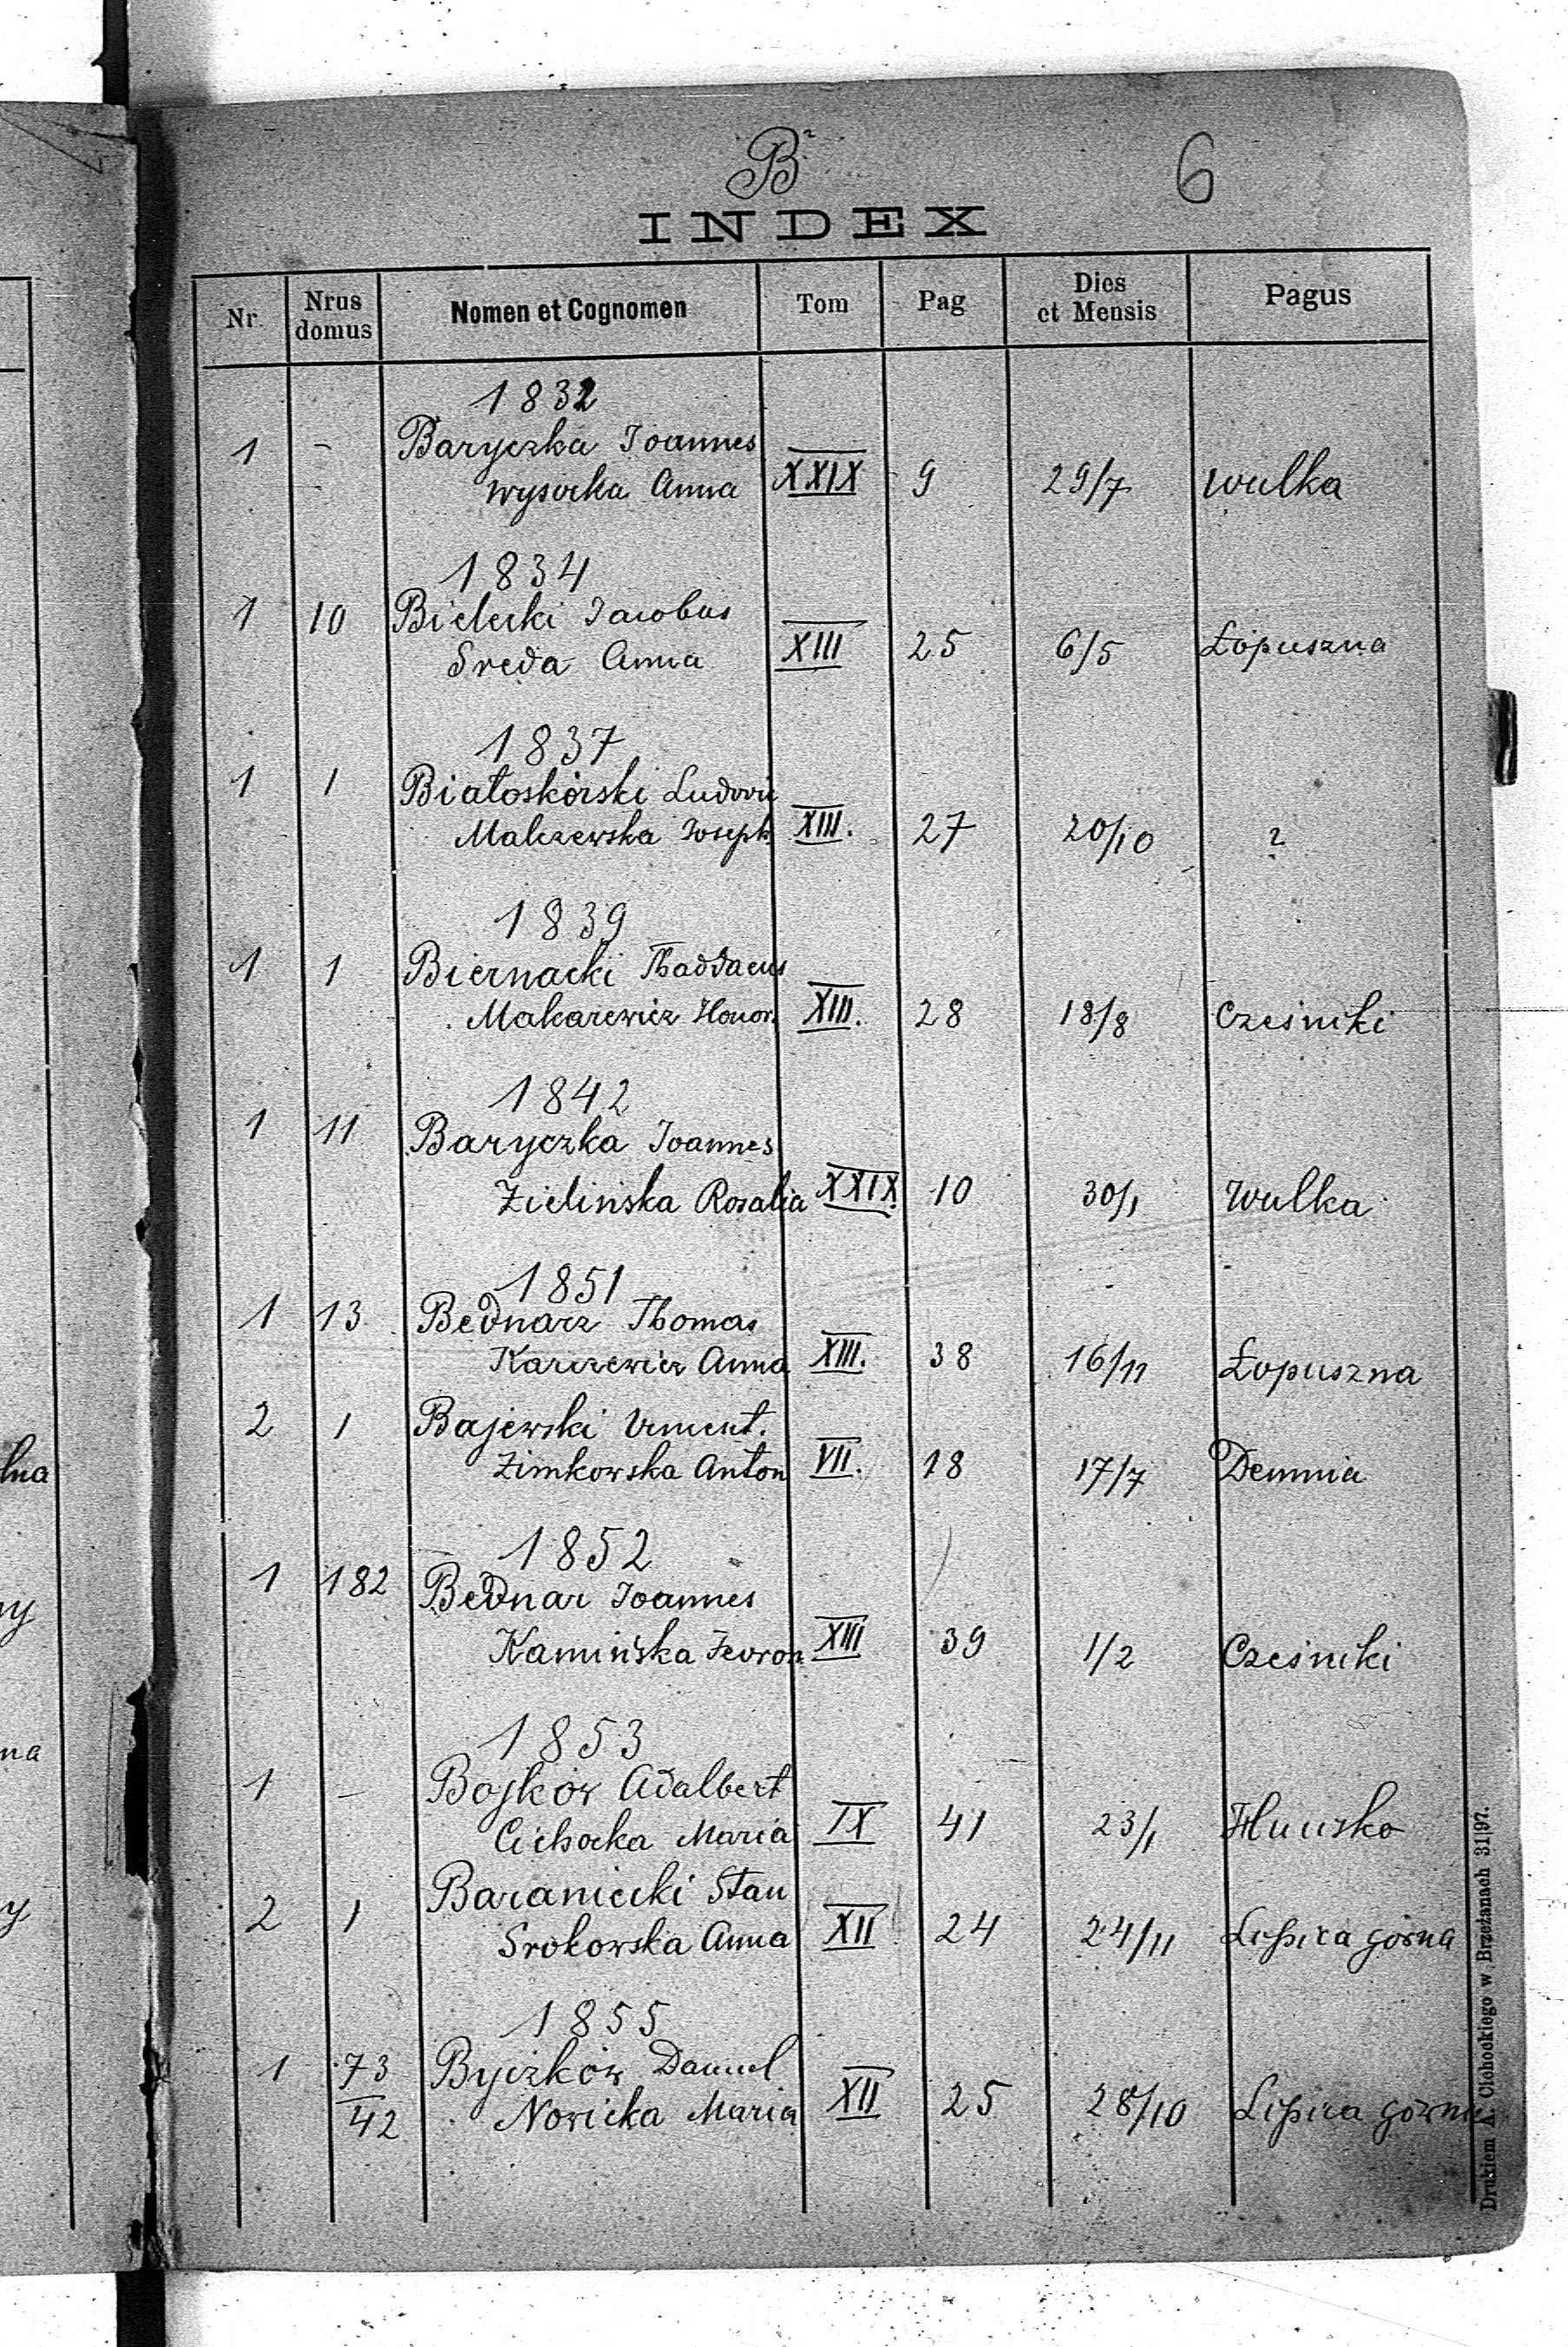 B
6
INDEX
Nr Nrus domus Nomen et Cognomen Tom Pag Dies et Mensis Pagus
1832
1 - Baryczka Joannes
Wysocka Anna XXIX 9 29/7 Wulka
1834
1 10 Bielecki Jacobus
Sreda Anna XIII 25 6/5 Łopuszna
1837
1 1 Białoskórski Ludovic
Malczewska Joseph XIII. 27 20/10 ?
1839
1 1 Biernacki Thaddaeus
Makarewicz Honor. XIII. 28 18/8 Cześniki
1842
1 11 Baryczka Joannes
Zielińska Rosalia XXIX. 10 30/1 Wulka
1851
1 13 Bednarz Thomas
Karczewicz Anna XIII. 38 16/11 Łopuszna
2 1 Bajewski Vincent.
Zimkowska Anton VII. 18 17/7 Demnia
1852
1 182 Bednar Joannes
Kamińska Fevron. XIII 39 1/2 Cześniki
1853
1 - Bojków Adalbert
Cichocka Maria IX 41 23/1
2 1 Baraniecki Stan
Srokowska Anna XII 24 24/11 Lipica górna
1855
1 73/42 Byczków Daniel
Nowicka Maria XII 25 28/10 Lipica górna
Drukiem A. Cichockiego w Brzeżanach 31|97.
lna
ny
na
y